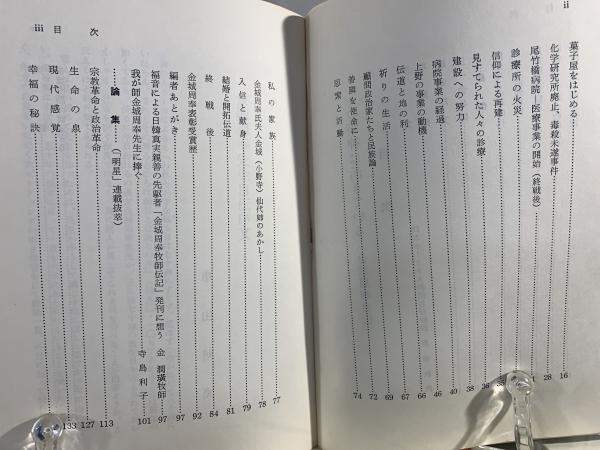 ii
菓子屋をはじめる 16
化学研究所廃止、毒殺未遂事件 28
尾竹橋病院・医療事業の開始(終戦後)
診療所の火災
信仰による再建
見すてられた人々の診療 38
建設への努力 40
病院事業の経過 46
上野の事業の動機 66
伝道と地の利 67
祈りの生活 69
顧問政治家たちと民族論 72
善隣を使命に
思索と活動 74
目次 iii
私の家族 77
金城周奉氏夫人金城(小野寺)仙代姉のあかし 78
入信と献身 79
結婚と開拓伝道 81
終戦後 84
金城周奉表彰受賞歴 92
編者あとがき 97
福音による日韓真実親善の先駆者「金城周奉牧師伝記」発刊に想う 金潤璜牧師 97
我が師金城周奉先生に捧ぐ 寺島利子 101
……論集……(「明星」連載抜萃)
宗教革命と政治革命 113
生命の泉 127
現代感覚 133
幸福の秘訣